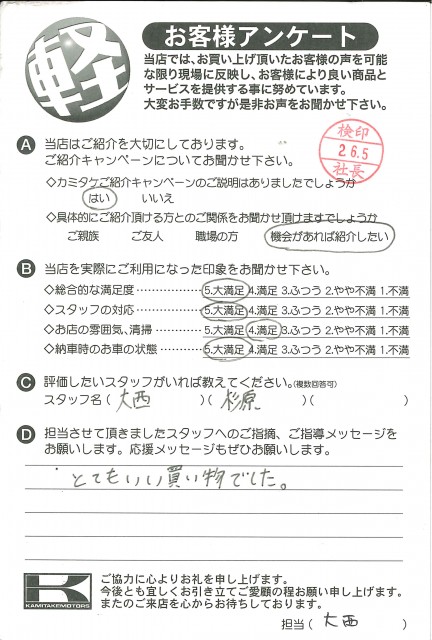 軽
お客様アンケート
当店では、お買い上げ頂いたお客様の声を可能
な限り現場に反映し、お客様により良い商品と
サービスを提供する事に努めています。
大変お手数ですが是非お声をお聞かせ下さい。
A 当店はご紹介を大切にしております。
ご紹介キャンペーンについてお聞かせ下さい。
検印
26.5
社長
◇カミタケご紹介キャンペーンのご説明はありましたでしょうか
はい いいえ
◇具体的にご紹介頂ける方とのご関係をお聞かせ頂けますでしょうか
ご親族 ご友人 職場の方 機会があれば紹介したい
B 当店を実際にご利用になった印象をお聞かせ下さい。
◇総合的な満足度 ……………… 5.大満足 4.満足 3.ふつう 2.やや不満 1.不満
◇スタッフの対応 ……………… 5.大満足 4.満足 3.ふつう 2.やや不満 1.不満
◇お店の雰囲気、清掃 ………… 5.大満足 4.満足 3.ふつう 2.やや不満 1.不満
◇納車時のお車の状態 ………… 5.大満足 4.満足 3.ふつう 2.やや不満 1.不満
C 評価したいスタッフがいれば教えてください。(複数回答可)
スタッフ名( 大西 )( 杉原 )( )
D 担当させて頂きましたスタッフへのご指摘、ご指導メッセージを
お願いします。応援メッセージもぜひお願いします。
とてもいい買い物でした。
K
KAMITAKEMOTORS
ご協力に心よりお礼を申し上げます。
今後とも宜しくお引き立てご愛顧の程お願い申し上げます。
またのご来店を心からお待ちしております。
担当( 大西 )